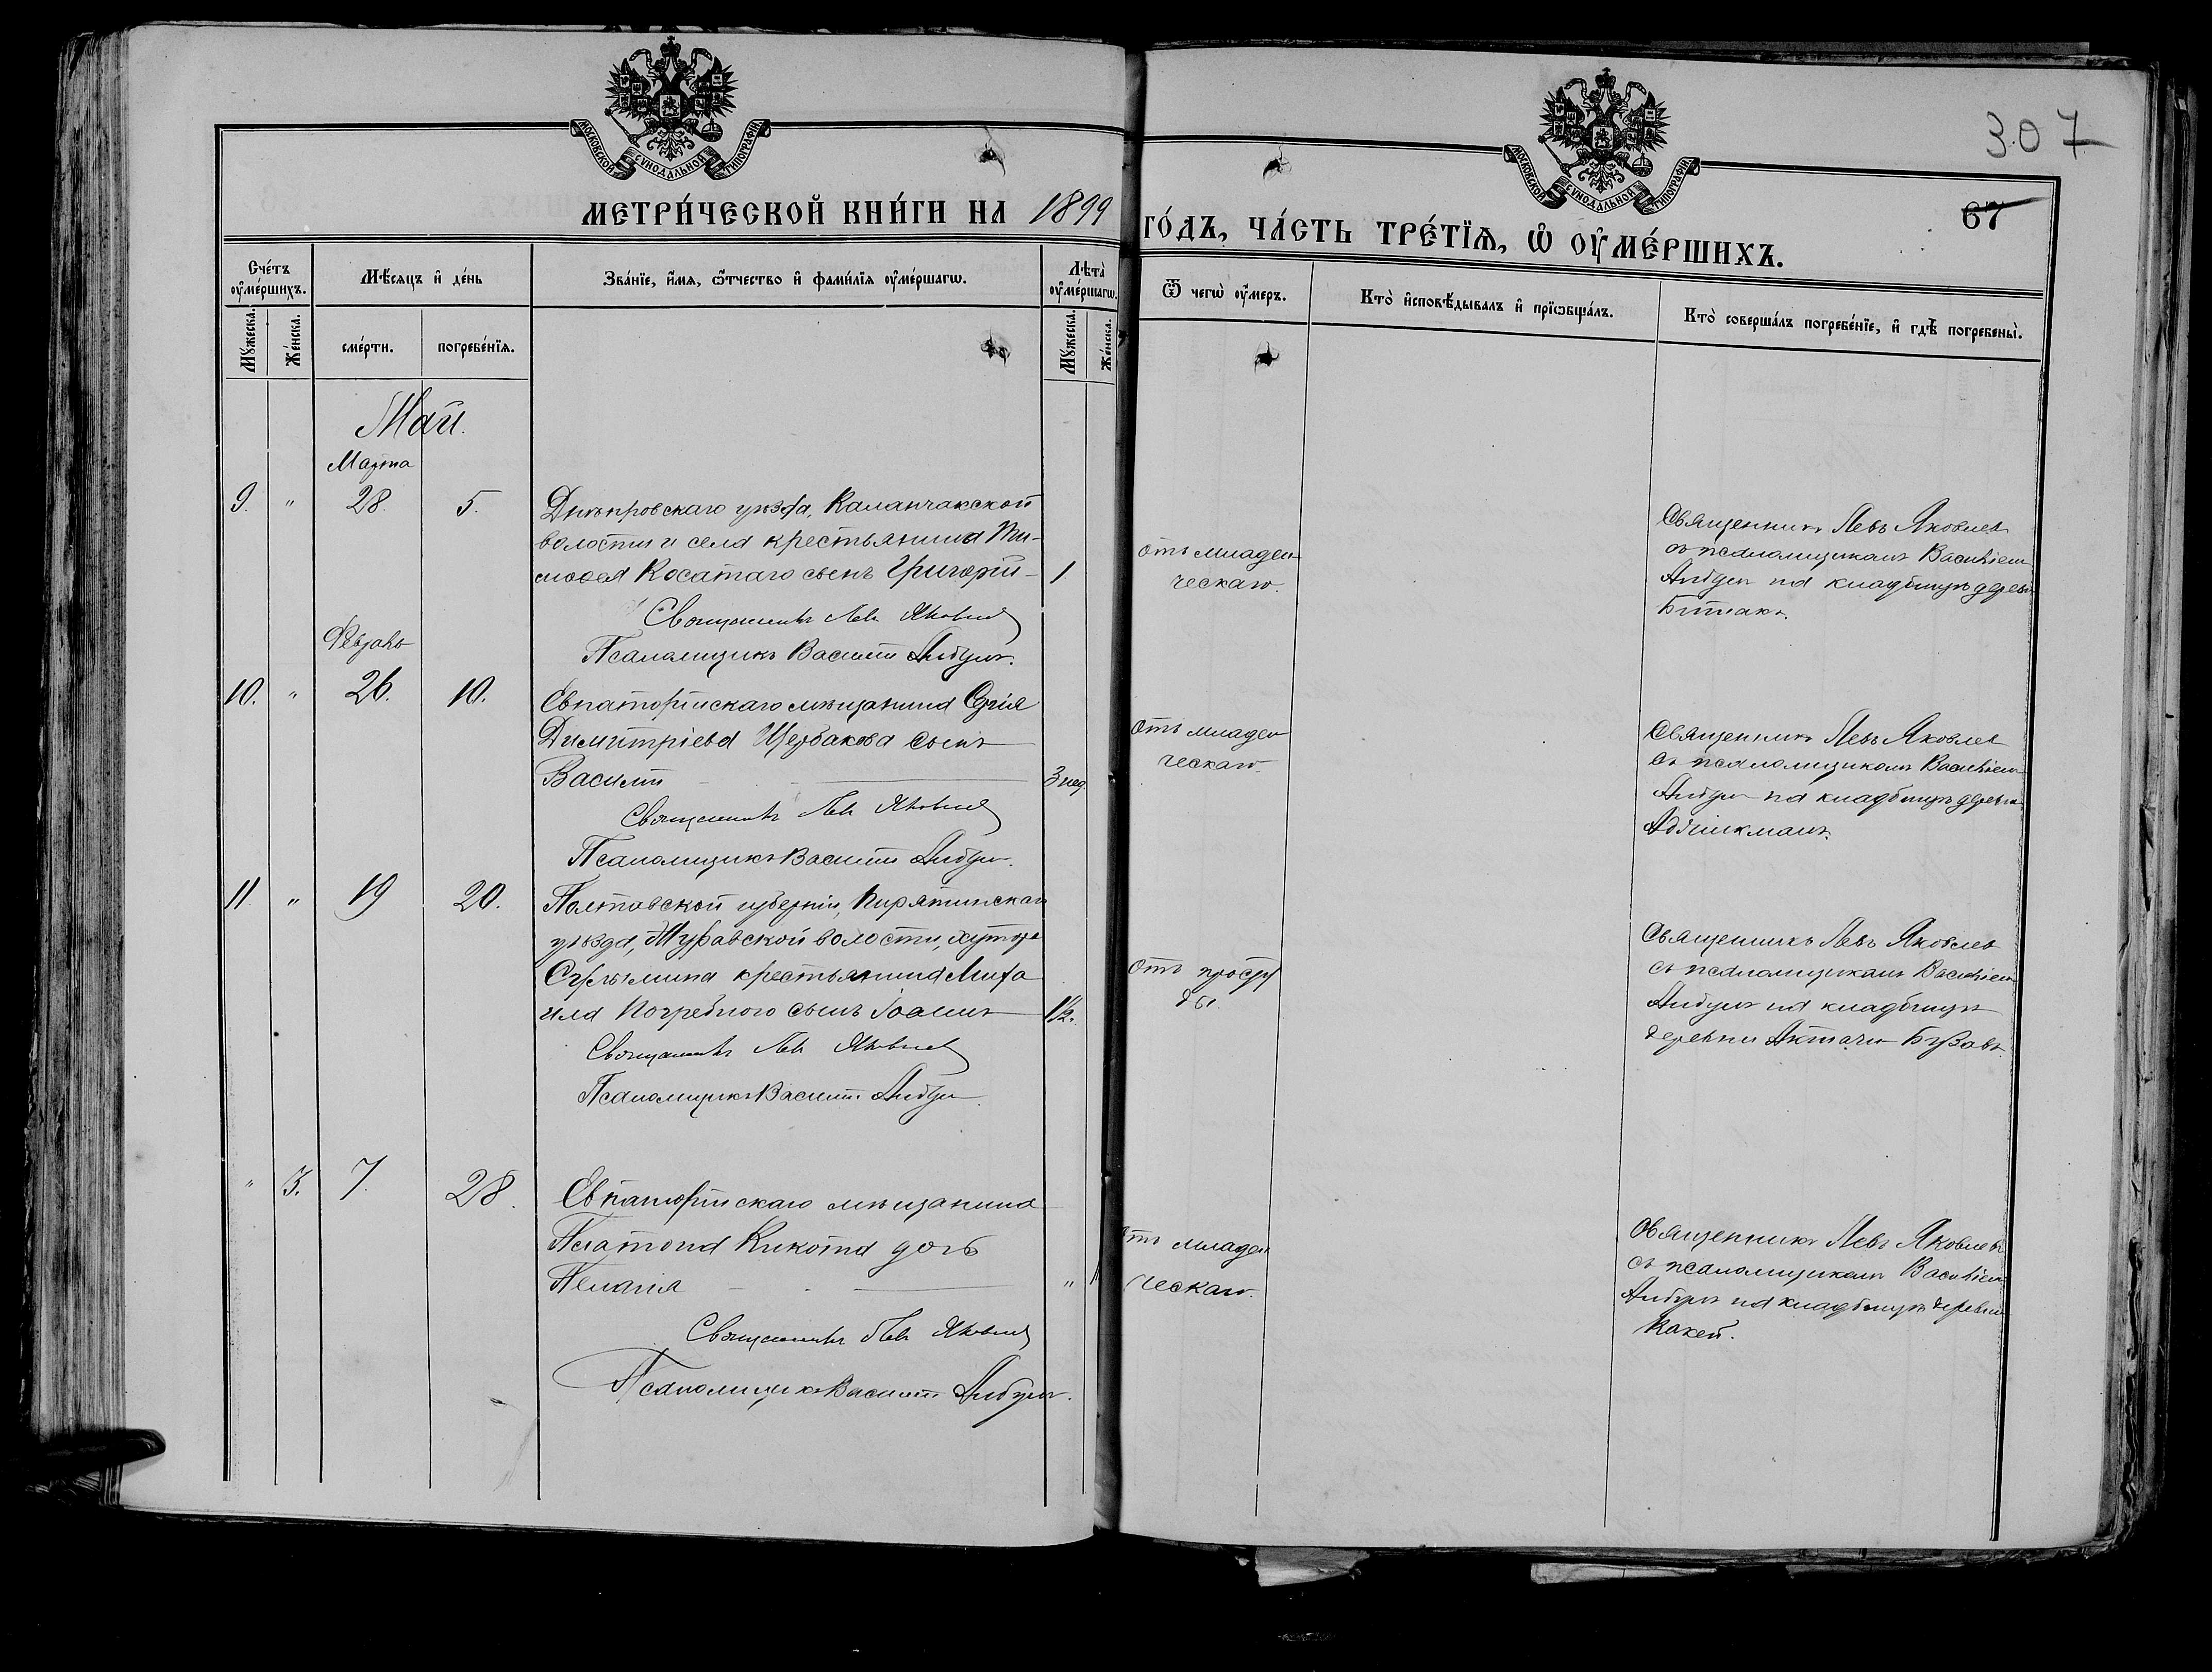 МОСКОВСКОЙ СѴНОДАЛЬНОЙ ТИПОГРАФІИ
МОСКОВСКОЙ СѴНОДАЛЬНОЙ ТИПОГРАФІИ
307
67
МЕТРИ́ЧЕСКОЙ КНИ́ГИ НА 1899 ГО́ДЪ, ЧА́СТЬ ТРЕ́ТЇѦ, Ѡ҆ ОУ҆МЕ́РШИХЪ.
Сче́тъ оу҆ме́ршихъ.
Мꙋ́жеска.
Же́нска.
Мѣ́сяцъ и҆ де́нь
сме́рти.
погребе́нїѧ.
Зва́нїе, и҆́мѧ, ѻ҆́тчество и҆ фами́лїѧ оу҆ме́ршагѡ.
Лѣ́та оу҆ме́ршагѡ.
Мꙋ́жеска.
Же́нска.
Ѿ чегѡ̀ оу҆́меръ.
Кто̀ и҆сповѣ́дывалъ и҆ прїѡбща́лъ.
Кто̀ соверша́лъ погребе́нїе, и҆ гдѣ̀ погребены̀.
Май.
Марта
9. " 28. 5.
Днѣпровскаго уѣзда, Каланчакской
волости и села крестьянина Ти-
моѳея Косатаго сынъ Григорій - 1
Священникъ Левъ Яковлевъ
Псаломщикъ Василій
отъ младен
ческаго.
Священникъ Левъ Яковлевъ
съ псаломщикомъ Василіемъ
на кладбищѣ деревни
Февраль
10. " 26. 10.
Евпаторійскаго мѣщанина Сергія
Димитріева Щербакова сынъ
Василій 3 нед.
Священникъ Левъ Яковлевъ
Псаломщикъ Василій
отъ младен
ческаго.
Священникъ Левъ Яковлевъ
съ псаломщикомъ Василіемъ
на кладбищѣ деревни
11 " 19 20.
Полтавской губерніи, Пирятинскаго
уѣзда, Журавской волости, хутора
крестьянина Миха
ила Погребного сынъ Іоаннъ 1½.
Священникъ Левъ Яковлевъ
Псаломщикъ Василій
отъ просту
ды.
Священникъ Левъ Яковлевъ
съ псаломщикомъ Василіемъ
на кладбищѣ
деревни Актачи
" 3. 7. 28.
Евпаторійскаго мѣщанина
Платона дочь
Пелагія " 1
Священникъ Левъ Яковлевъ
Псаломщикъ Василій
отъ младен
ческаго.
Священникъ Левъ Яковлевъ
съ псаломщикомъ Василіемъ
на кладбищѣ деревни